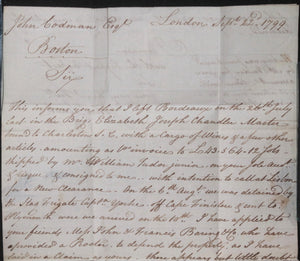 John Codman Esqr London Septr 22d 1799
Boston
Sir
This informs you that I left Bordeaux on the 26th July
last in the Brig Elizabeth Joseph Chandler Master
bound to Charleston S. C. with a Cargo of Wine & a few other
articles, amounting as pr invoice to
shipped by Mr William Tudor junior, on your
& risque & consigned to me, with intention to call at London
for a New Clearance. On the 6th Augt we was detained by
the Stag Frigate Captn Yorke off Cape Finister & sent to
Plymouth were we arrived on the I have applied to
your friends Messrs John & Francis Baring & Co who have
appointed a Proctor to defend the property, as I have
laid in a Claim as yours, there appears but little doubt of